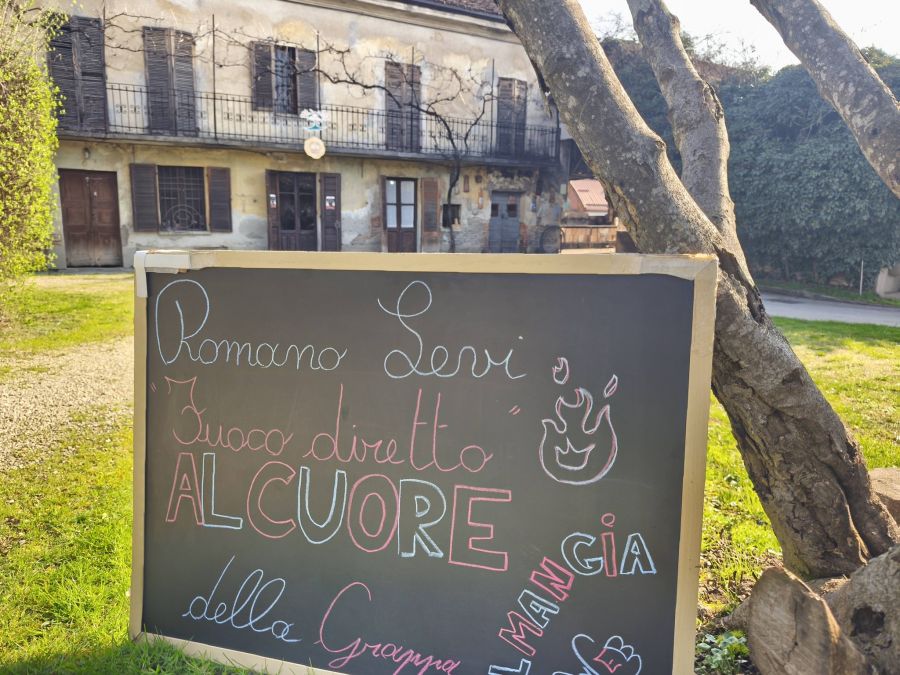 Romano Levi
"Fuoco diretto"
AL CUORE
della Grappa
MANGIA